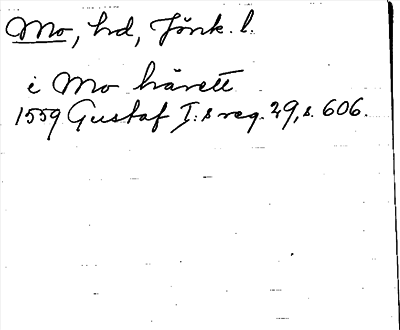 Mo, hd, Jönk. l.
i Mo härett
1559 Gustaf I:s reg. 29, s. 606.